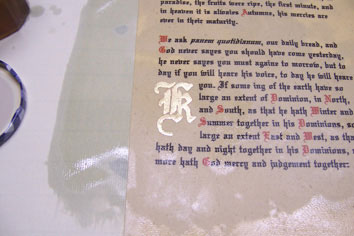 paradise, the fruits were ripe, the first minute, and
in heaven it is alwaies Autumne, his mercies are
ever in their maturity.
We ask panem quotidianum, our daily bread, and
God never says you should have come yesterday,
he never says you must againe to morrow, but to
day if you will heare his voice, to day he will heare
you. If some ing of the earth have so
large an extent of Dominion, in North,
and South, as that he hath Winter and
Summer together in his Dominions, so
large an extent East and West, as tha
hath day and night together in his Dominions,
more hath God mercy and judgement together:
K